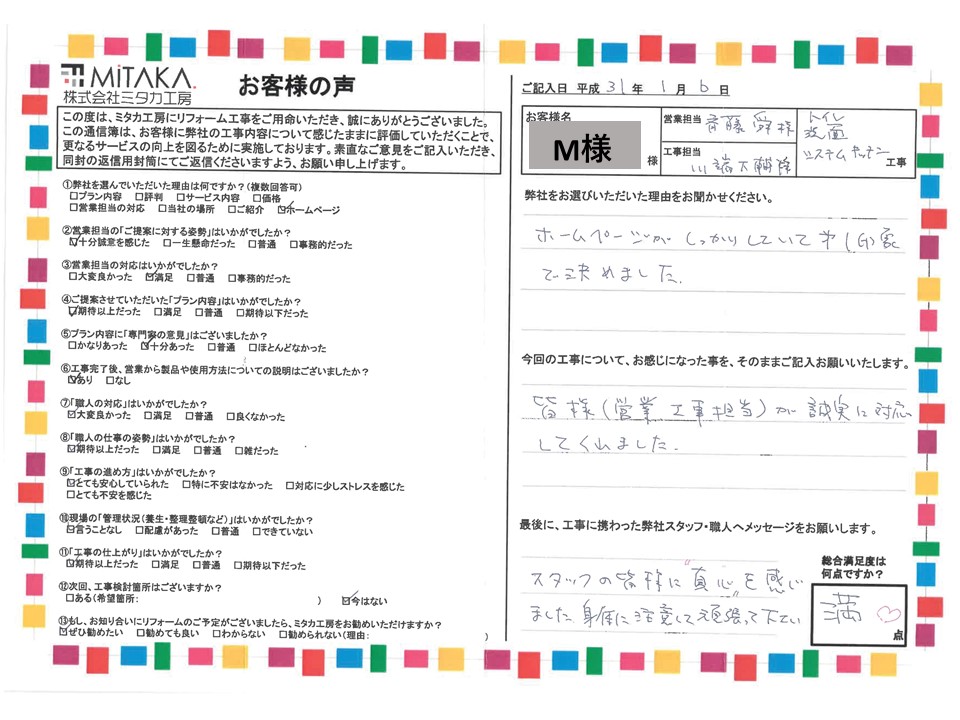 MiTAKA
株式会社ミタカ工房
お客様の声
この度は、ミタカ工房にリフォーム工事をご用命いただき、誠にありがとうございました。
この通信簿は、お客様に弊社の工事内容について感じたままに評価していただくことで、
更なるサービスの向上を図るために実施しております。素直なご意見をご記入いただき、
同封の返信用封筒にてご返信くださいますよう、お願い申し上げます。
①弊社を選んでいただいた理由は何ですか？(複数回答可)
□プラン内容 □評判 □サービス内容 □価格
□営業担当の対応 □当社の場所 □ご紹介 ☑ホームページ
②営業担当の「ご提案に対する姿勢」はいかがでしたか？
☑十分誠意を感じた □一生懸命だった □普通 □事務的だった
③営業担当の対応はいかがでしたか？
□大変良かった ☑満足 □普通 □事務的だった
④ご提案させていただいた「プラン内容」はいかがでしたか？
☑期待以上だった □満足 □普通 □期待以下だった
⑤プラン内容に「専門家の意見」はございましたか？
□かなりあった ☑十分あった □普通 □ほとんどなかった
⑥工事完了後、営業から製品や使用方法についての説明はございましたか？
☑あり □なし
⑦「職人の対応」はいかがでしたか？
☑大変良かった □満足 □普通 □良くなかった
⑧「職人の仕事の姿勢」はいかがでしたか？
☑期待以上だった □満足 □普通 □雑だった
⑨「工事の進め方」はいかがでしたか？
☑とても安心していられた □特に不安はなかった □対応に少しストレスを感じた
□とても不安を感じた
⑩現場の「管理状況(養生・整理整頓など)」はいかがでしたか？
☑言うことなし □配慮があった □普通 □できていない
⑪「工事の仕上がり」はいかがでしたか？
☑期待以上だった □満足 □普通 □期待以下だった
⑫次回、工事検討箇所はございますか？
□ある(希望箇所: ) ☑今はない
⑬もし、お知り合いにリフォームのご予定がございましたら、ミタカ工房をお勧めいただけますか？
☑ぜひ勧めたい □勧めても良い □わからない □勧められない(理由: )
ご記入日 平成 31 年 1 月 6 日
お客様名
M様
様
営業担当 斉藤 様
工事担当 川端 様
トイレ
設置
システムキッチン
工事
弊社をお選びいただいた理由をお聞かせください。
ホームページが しっかりしていて 才1印象
で決めました.
今回の工事について、お感じになった事を、そのままご記入お願いいたします。
皆様(営業 工事担当)が 誠実に対応
してくれました.
最後に、工事に携わった弊社スタッフ・職人へメッセージをお願いします。
スタッフの皆様に"真心"を感じ
ました 身体に注意して頑張って下さい
総合満足度は
何点ですか？
満 ♡
点